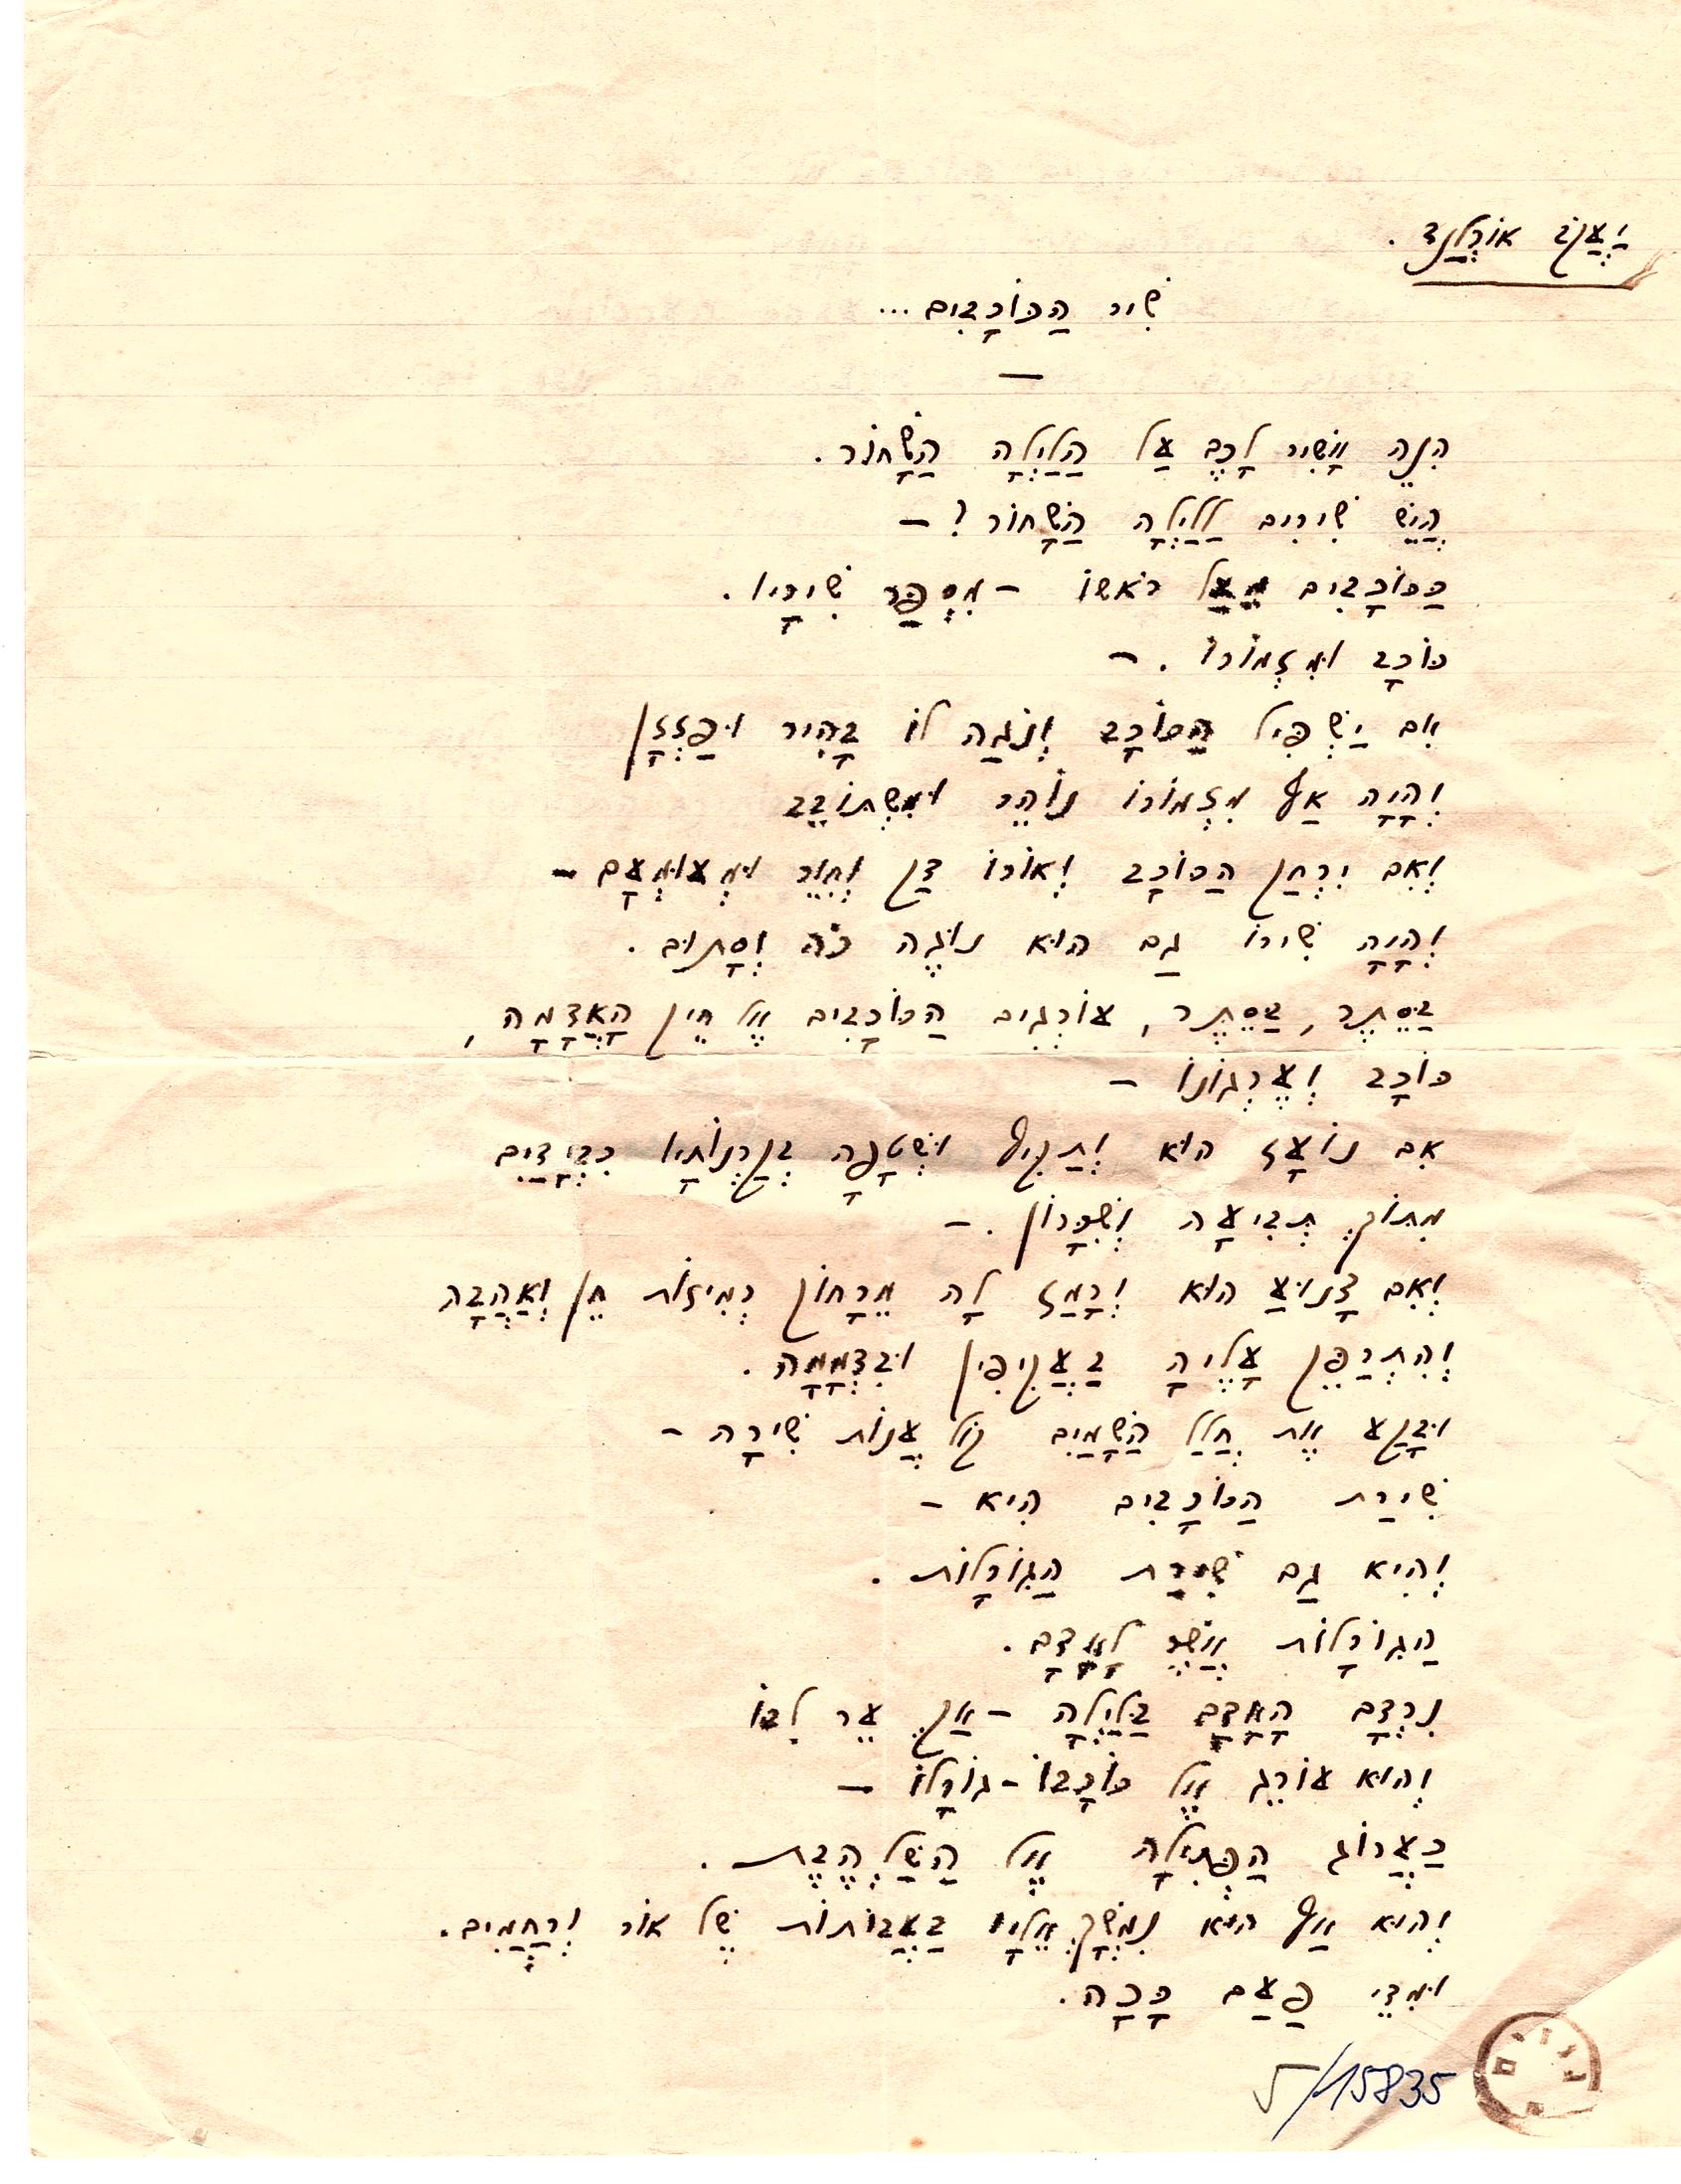 יַעֲקֹב אוֹרְלַנְד.
שִׁיר הַכּוֹכָבִים...
—
הִנֵּה אָשִׁיר לָכֶם עַל הַלַּיְלָה הַשָּׁחוֹר.
הֲיֵשׁ שִׁירִים לַלַּיְלָה הַשָּׁחוֹר? –
כַּכּוֹכָבִים מֵעַל רֹאשׁוֹ – מִסְפַּר שִׁירָיו.
כּוֹכָב וּמִזְמוֹרוֹ. –
אִם יַשְׁפִּיל הַכּוֹכָב וְנֹגַהּ לוֹ בָּהִיר וּפַזְּזָן
וְהָיָה אַף מִזְמוֹרוֹ נוֹהֵר וּמִשְׁתּוֹבֵב
וְאִם יִרְחַק הַכּוֹכָב וְאוֹרוֹ דַּק וְחִוֵּר וּמְעוּמְעָם –
וְהָיָה שִׁירוֹ גַם הוּא נוּגֶה כֹּה וְסָתוּם.
בַּסֵּתֶר, בַּסֵּתֶר, עוֹרְגִים הַכּוֹכָבִים אֶל חֵיק הָאֲדָמָה,
כּוֹכָב וְעֶרְגוֹנוֹ –
אִם נוֹעָז הוּא וְתַקִּיף וּשְׁטָפָהּ בְּקַרְנוֹתָיו כִּבְיָדַיִם
מִתּוֹךְ תְּבִיעָה וְשִׁכָּרוֹן. –
וְאִם צָנוּעַ הוּא וְרָמַז לָהּ מֵרָחוֹק רְמִיזוֹת חֵן וְאַהֲבָה
וְהִתְרַפֵּק עָלֶיהָ בַּעֲקִיפִין וּבִדְמָמָה.
וּבָקַע אֶת חֲלַל הַשָּׁמַיִם קוֹל עֲנוֹת שִׁירָה –
שִׁירַת הַכּוֹכָבִים הִיא –
וְהִיא גַם שִׁירַת הַגּוֹרָלוֹת.
הַגּוֹרָלוֹת אֲשֶׁר לָאָדָם.
נִרְדָּם הָאָדָם בַּלַּיְלָה – אַךְ עֵר לִבּוֹ
וְהוּא עוֹרֵג אֶל כּוֹכָבוֹ – גוֹרָלוֹ –
כַּעֲרוֹג הַפְּתִילָה אֶל הַשַּׁלְהֶבֶת.
וְהוּא אַף הוּא נִמְשָׁךְ אֵלָיו בַּעֲבוֹתוֹת שֶׁל אוֹר וְרַחֲמִים.
וּמִדֵּי פַּעַם כָּכָה.
גנזים
5/15835